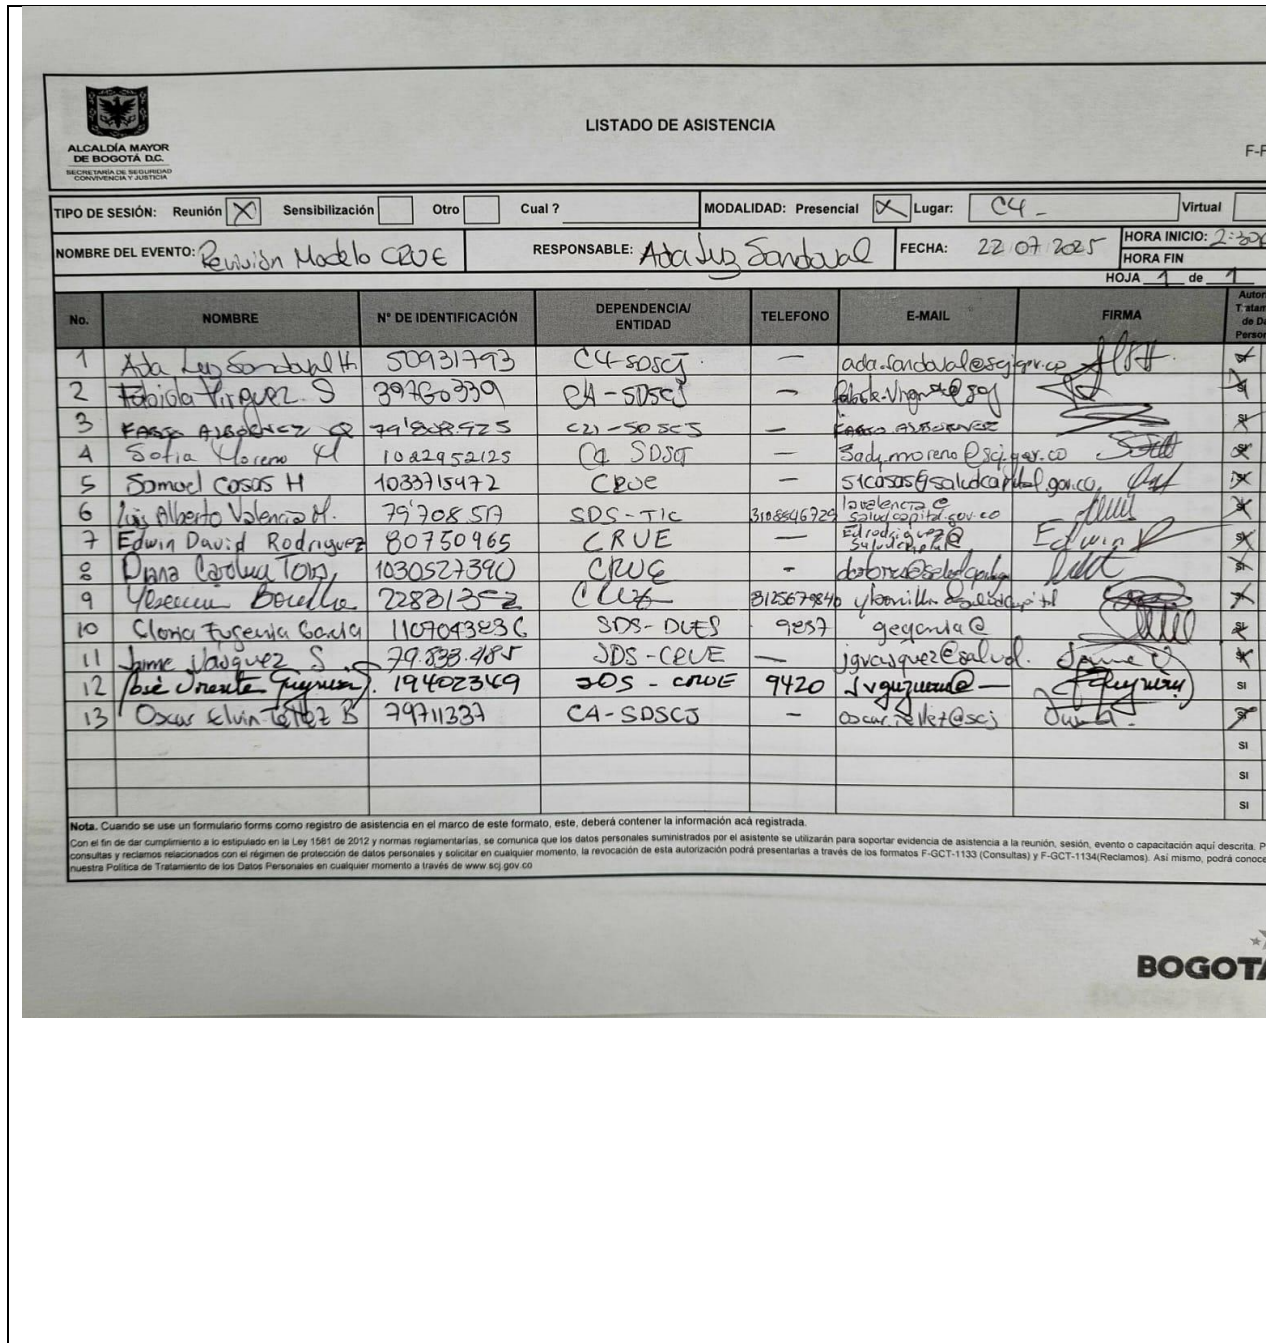 ALCALDÍA MAYOR
DE BOGOTÁ D.C.
SECRETARÍA DE SEGURIDAD
CONVIVENCIA Y JUSTICIA
LISTADO DE ASISTENCIA
TIPO DE SESIÓN: Reunión X Sensibilización Otro Cual ? MODALIDAD: Presencial X Lugar: C4 - Virtual
NOMBRE DEL EVENTO: Revisión Modelo CRUE RESPONSABLE: Ada Luz Sandoval FECHA: 22 07 2025 HORA INICIO: 2:30
HORA FIN
HOJA 1 de 1
No. NOMBRE N° DE IDENTIFICACIÓN DEPENDENCIA/ ENTIDAD TELEFONO E-MAIL FIRMA
1 Ada Luz Sandoval H. 50931793 C4-SDSCJ. — ada.sandoval@scj.gov.co
2 Fabiola Virguez. S 39760339 C4-SDSCJ —
3 79'808.925 — 
4 Sofia Moreno M 1022952125 C4 SDSCJ — .moreno@scj.gov.co
5 Samuel Casas H 1033715972 CRUE — s1casas@saludcapital.gov.co
6 Luis Alberto Valencia M. 79'708.517 SDS-TIC 3108846729 lavalencia@ saludcapital.gov.co
7 Edwin David Rodriguez 80750965 CRUE — Edrodriguez@ Edwin R
8 Diana Carolina 1030527390 CRUE -
9 CRUE
10 Gloria Eugenia García SDS-DUES 9837
11 Jaime Vasquez S. 79.833.485 SDS-CRUE — jgvasquez@salud. Jaime V
12 José 19402349 SDS - CRUE 9420 SI
13 Oscar Elvin Tellez B 79711337 C4-SDSCJ - oscar.tellez@scj
SI
SI
SI
Nota. Cuando se use un formulario forms como registro de asistencia en el marco de este formato, este, deberá contener la información acá registrada.
Con el fin de dar cumplimiento a lo estipulado en la Ley 1581 de 2012 y normas reglamentarías, se comunica que los datos personales suministrados por el asistente se utilizarán para soportar evidencia de asistencia a la reunión, sesión, evento o capacitación aquí descrita. P
consultas y reclamos relacionados con el régimen de protección de datos personales y solicitar en cualquier momento, la revocación de esta autorización podrá presentarlas a través de los formatos F-GCT-1133 (Consultas) y F-GCT-1134(Reclamos). Así mismo, podrá conoce
nuestra Política de Tratamiento de los Datos Personales en cualquier momento a través de www.scj.gov.co
BOGOTÁ